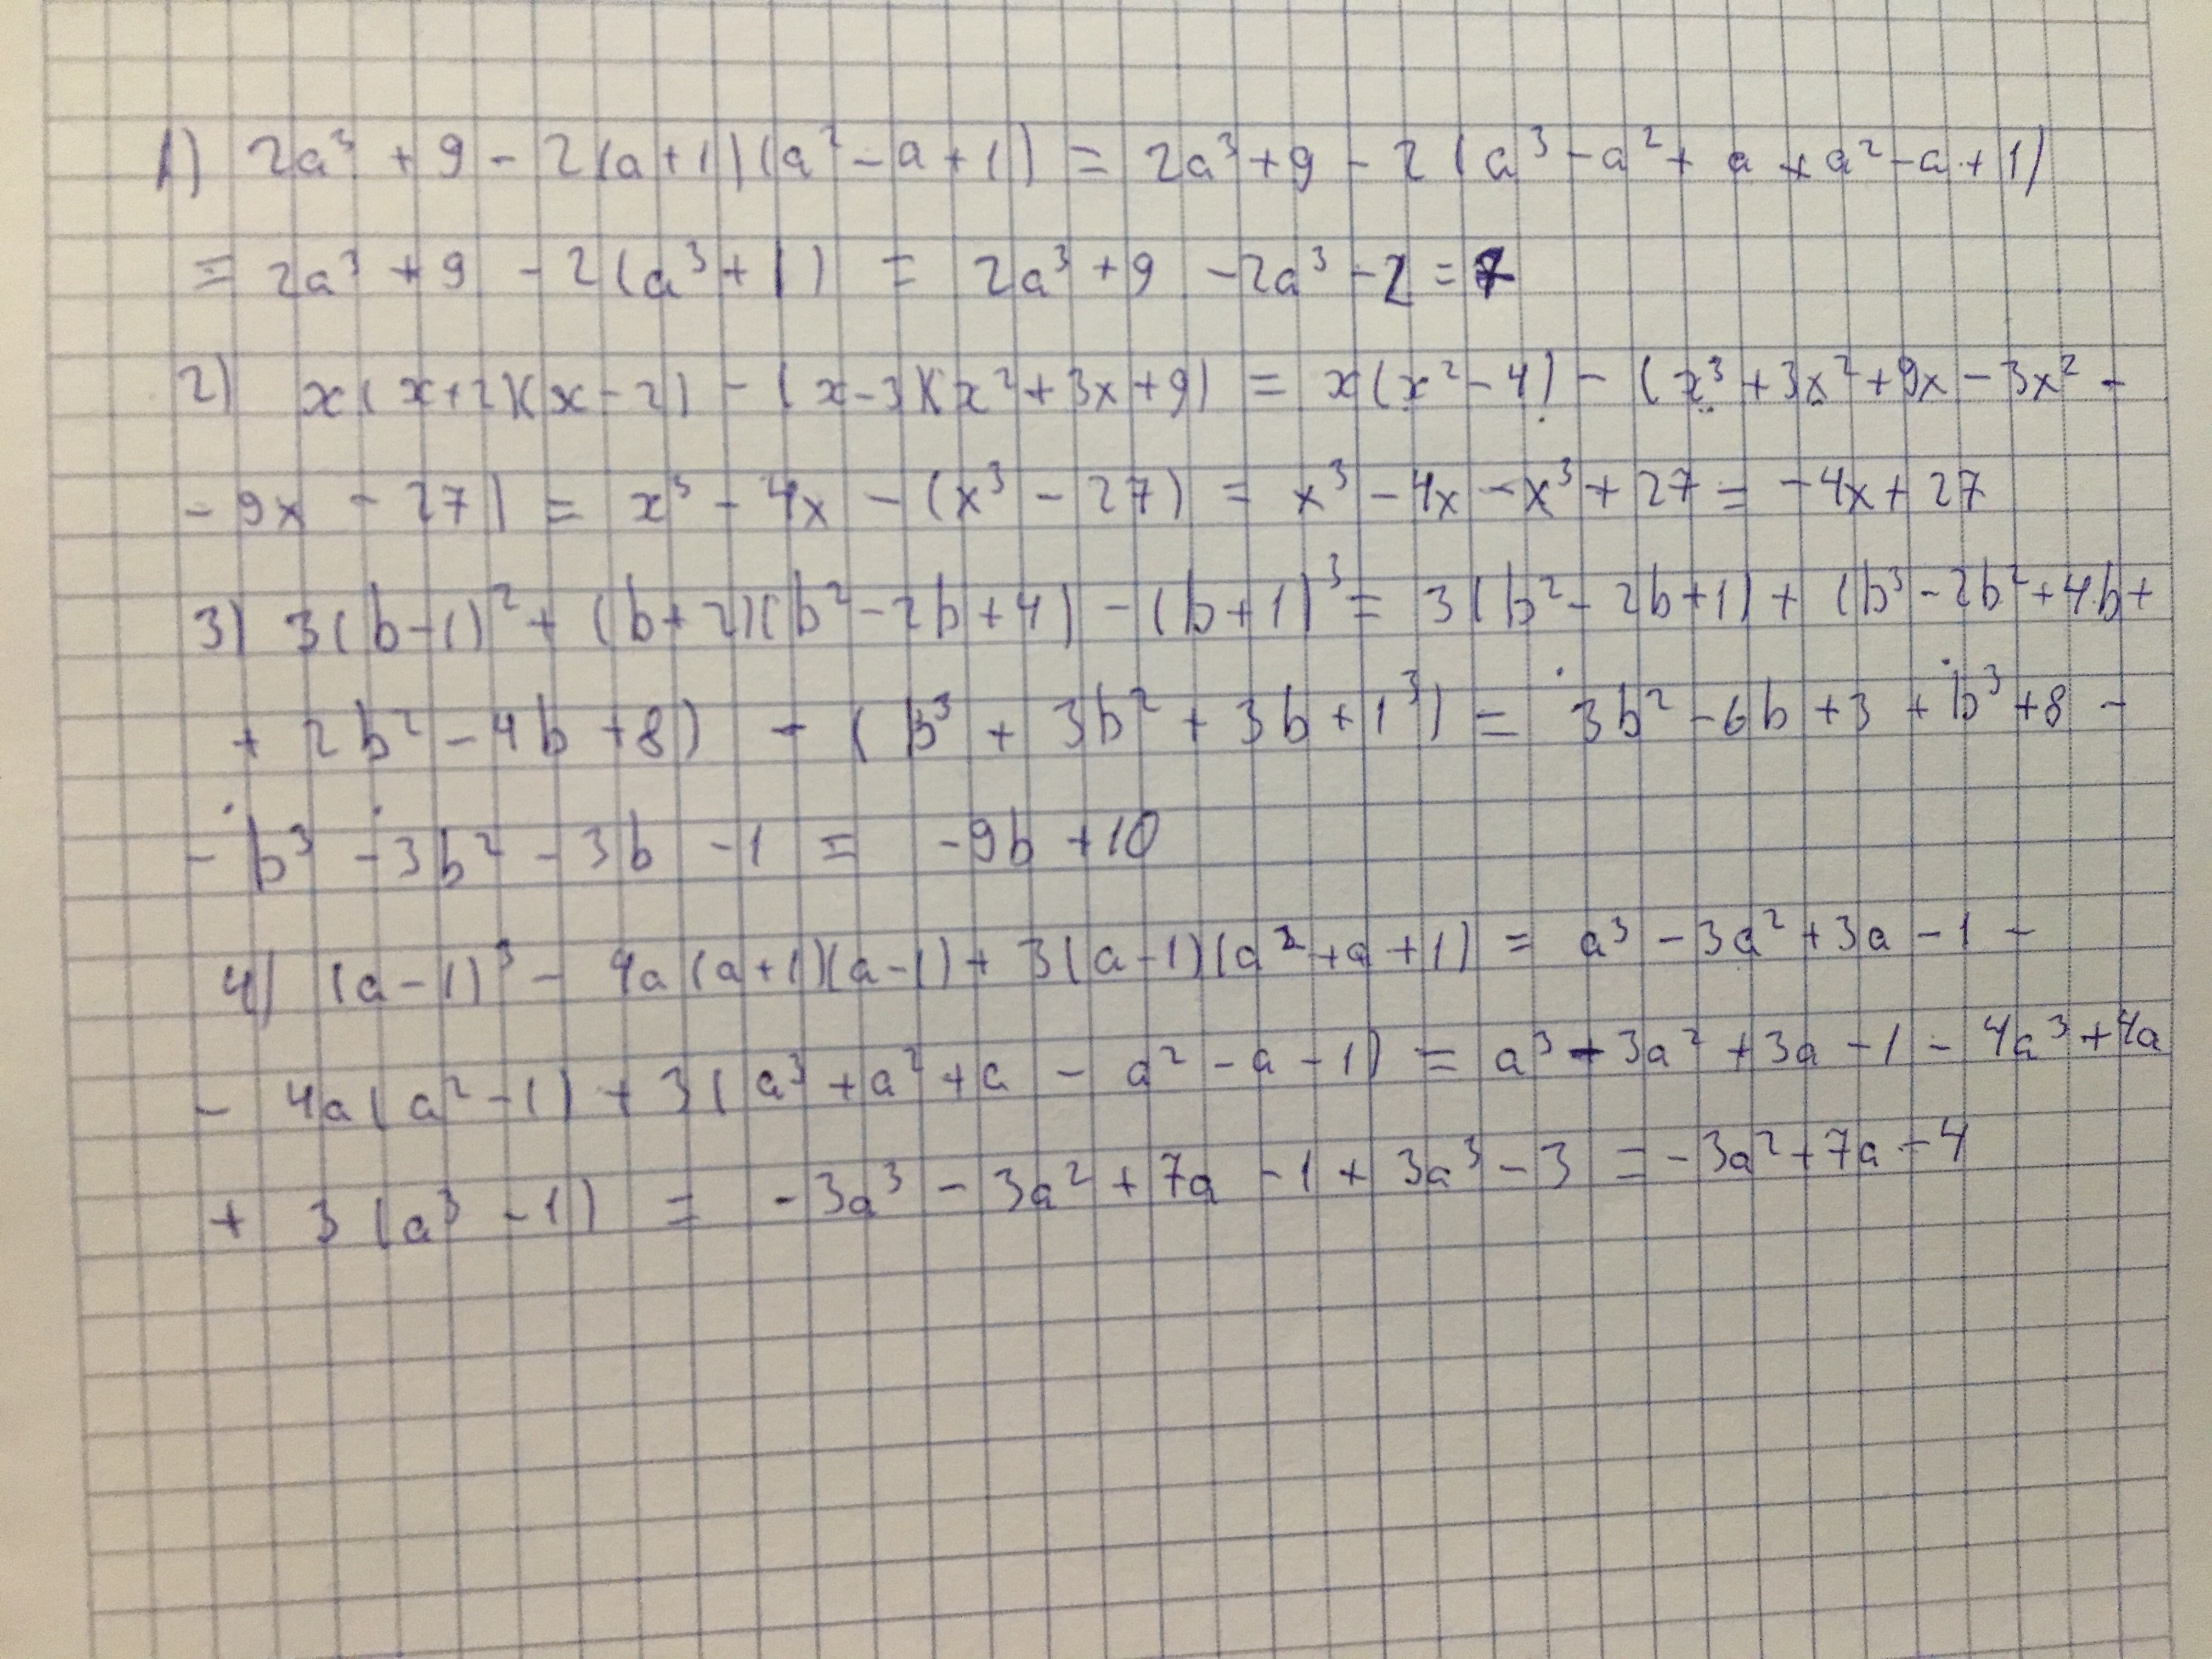 1) 2a³ + 9 - 2(a+1)(a² - a + 1) = 2a³ + 9 - 2(a³ - a² + a + a² - a + 1)
= 2a³ + 9 - 2(a³ + 1) = 2a³ + 9 - 2a³ - 2 = 7
2) x(x+2)(x-2) - (x-3)(x² + 3x + 9) = x(x² - 4) - (x³ + 3x² + 9x - 3x² -
- 9x - 27) = x³ - 4x - (x³ - 27) = x³ - 4x - x³ + 27 = -4x + 27
3) 3(b-1)² + (b+2)(b² - 2b + 4) - (b+1)³ = 3(b² - 2b + 1) + (b³ - 2b² + 4b +
+ 2b² - 4b + 8) - (b³ + 3b² + 3b + 1³) = 3b² - 6b + 3 + b³ + 8 -
- b³ - 3b² - 3b - 1 = -9b + 10
4) (a-1)³ - 4a(a+1)(a-1) + 3(a-1)(a² + a + 1) = a³ - 3a² + 3a - 1 -
- 4a(a² - 1) + 3(a³ + a² + a - a² - a - 1) = a³ - 3a² + 3a - 1 - 4a³ + 4a
+ 3(a³ - 1) = -3a³ - 3a² + 7a - 1 + 3a³ - 3 = -3a² + 7a - 4